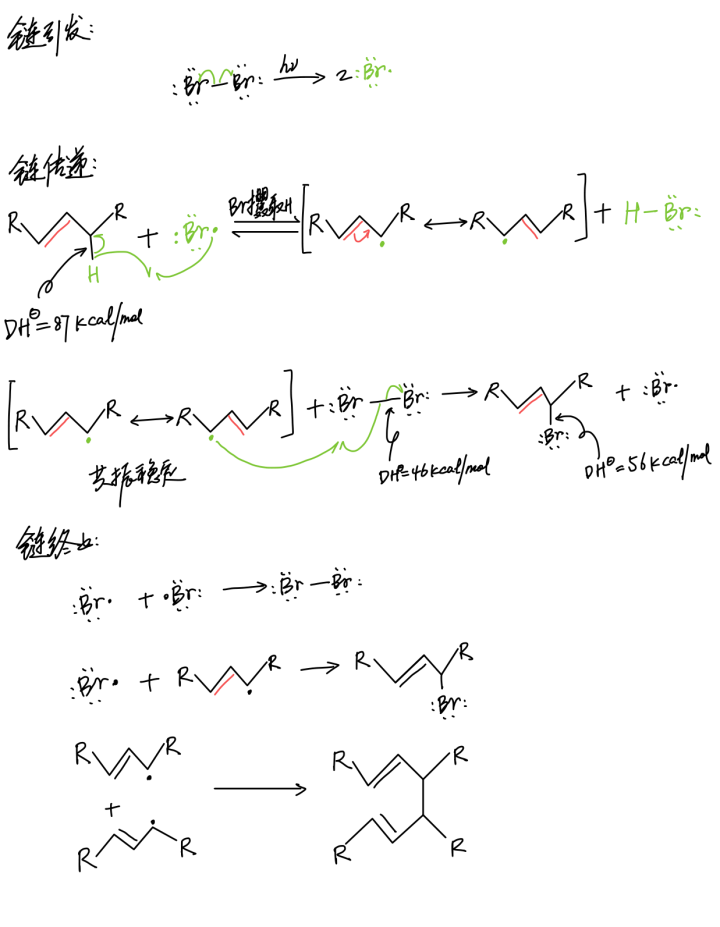 链引发:
:Br—Br: hν 2 :Br·
链传递:
R R + :Br· Br攫取H [R R ↔ R R] + H—Br:
H
DH⊖=87kcal/mol
[R R ↔ R R] + :Br—Br: → R R + :Br·
:Br:
共振稳定 DH⊖=46kcal/mol DH⊖=56kcal/mol
链终止:
:Br· + ·Br: → :Br—Br:
:Br· + R R → R R
:Br:
R R R R
+ →
R R R R